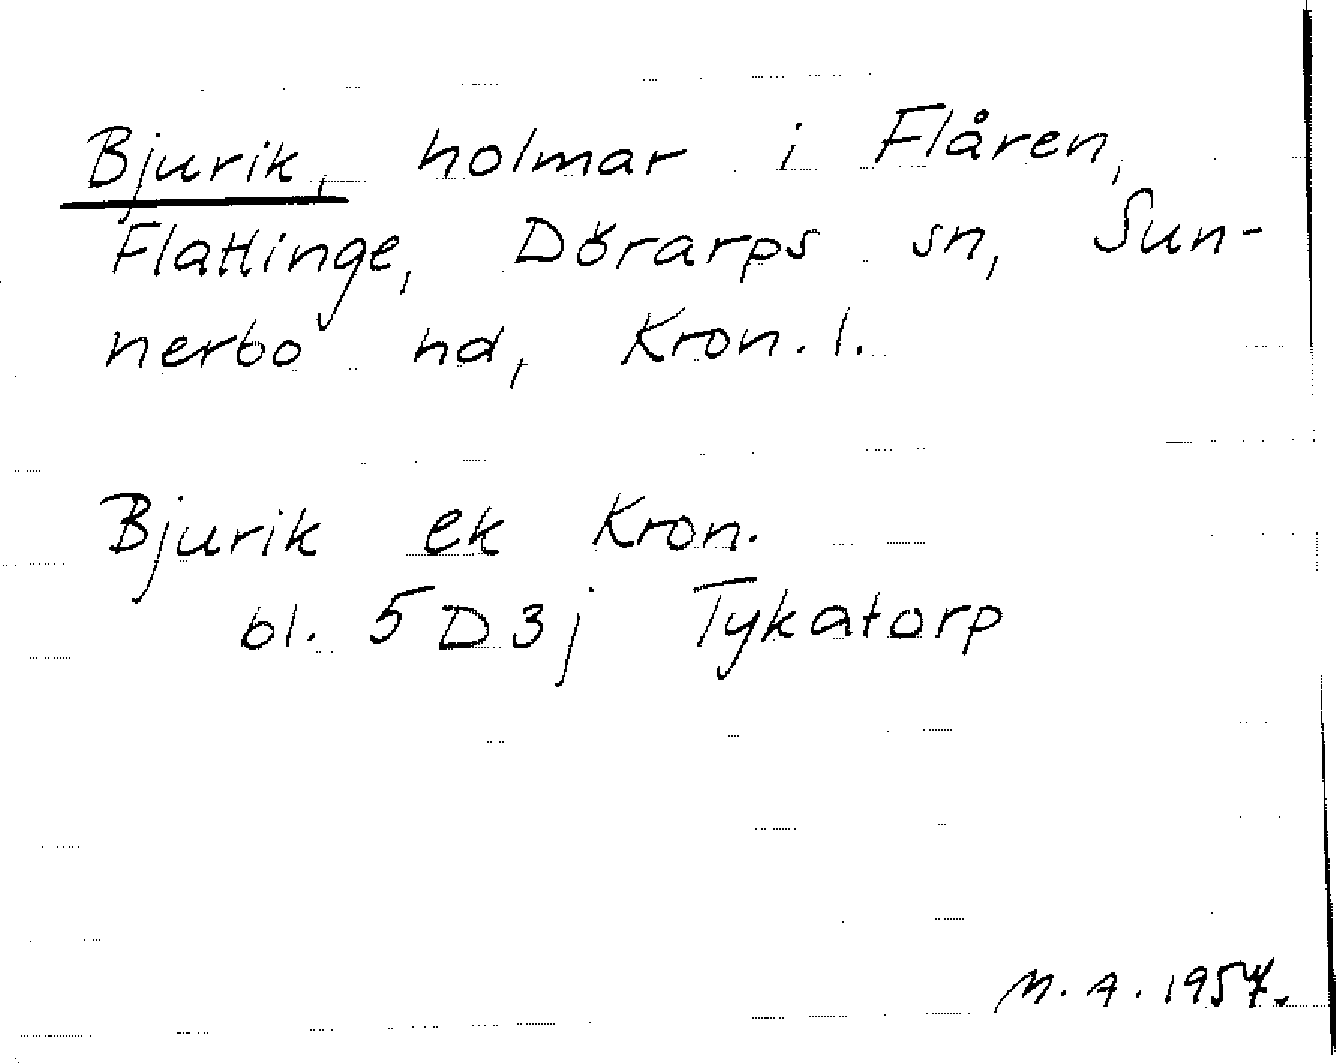 Bjurik, holmar i Flåren,
Flattinge, Dörarps sn, Sun-
nerbo hd, Kron. l.
Bjurik ek Kron.
bl. 5D3j Tykatorp
M. A. 1957.